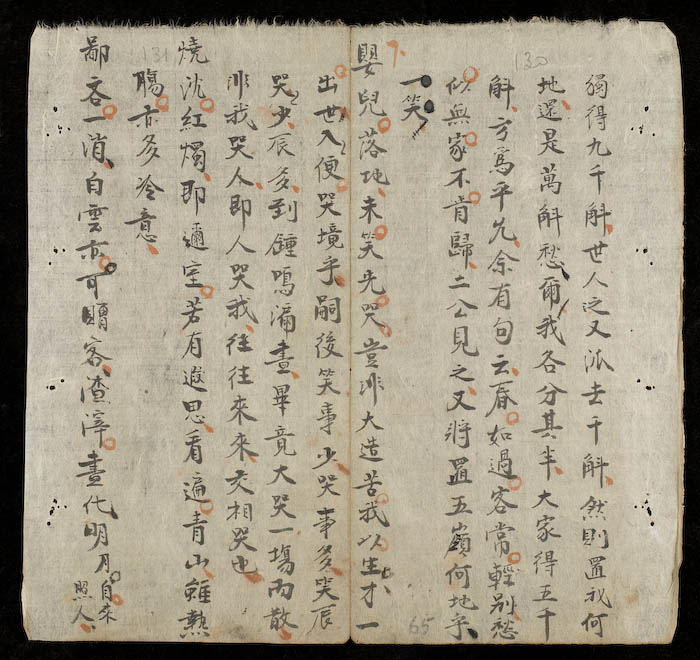 獨得九千斛、世人之又派去千斛、然則置我何
地、還是萬斛愁、爾我各分其半、大家得五千
斛、方爲平允、余有句云、春如過客常輕別、愁
似無家不肯歸、二公見之、又將置五嶺何地乎、
一笑
嬰兒落地、未笑先哭、豈非大造苦我以生、才一
出世入便哭境乎、嗣後笑事少哭事多、笑辰
少哭辰多、到鍾鳴漏盡、畢竟大哭一場而散、
非我哭人、即人哭我、往往來來、交相哭也
燒沈紅燭、即邇室若有遐思、看遍青山、雖熱
腸亦多冷意、
鄙吝一消、白雲亦可贈客、渣滓盡化、明月自來
照人、
130
131
65